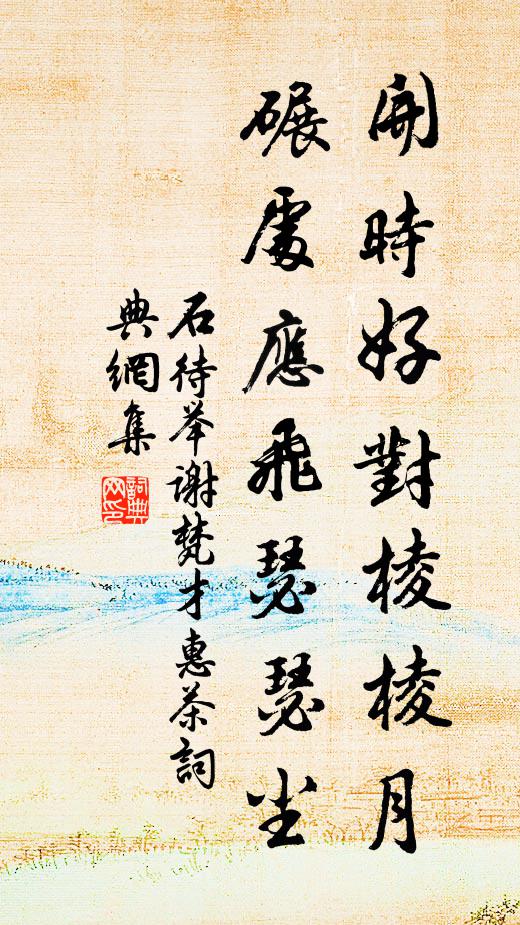 開時好對棱棱月
碾處應飛瑟瑟尘
石待举谢梵才惠茶詞
典網集
詞典
网印